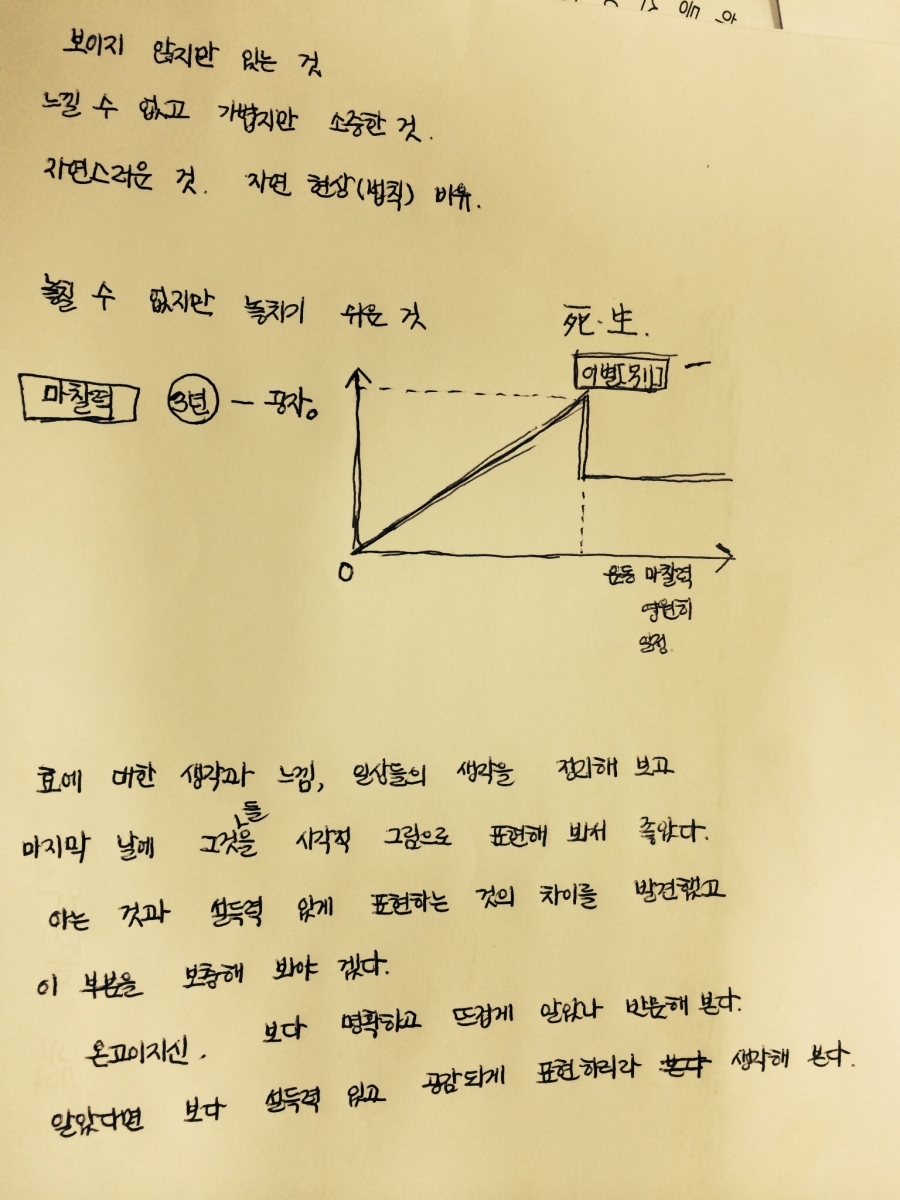 보이지 않지만 있는 것
느낄 수 없고 가볍지만 소중한 것.
자연스러운 것. 자연 현상(법칙) 비유.
놓칠 수 없지만 놓치기 쉬운 것
死·生.
이별[別]
마찰력 3년 – 공자。
0
운동 마찰력
영원히
일정.
효에 대한 생각과 느낌, 일상들의 생각을 정리해 보고
들
마지막 날에 그것을 시각적 그림으로 표현해 봐서 좋았다.
아는 것과 설득력 있게 표현하는 것의 차이를 발견했고
이 부분을 보충해 봐야 겠다.
온고이지신. 보다 명확하고 뜨겁게 알았나 반문해 본다.
알았다면 보다 설득력 있고 공감되게 표현하리라 생각해 본다.